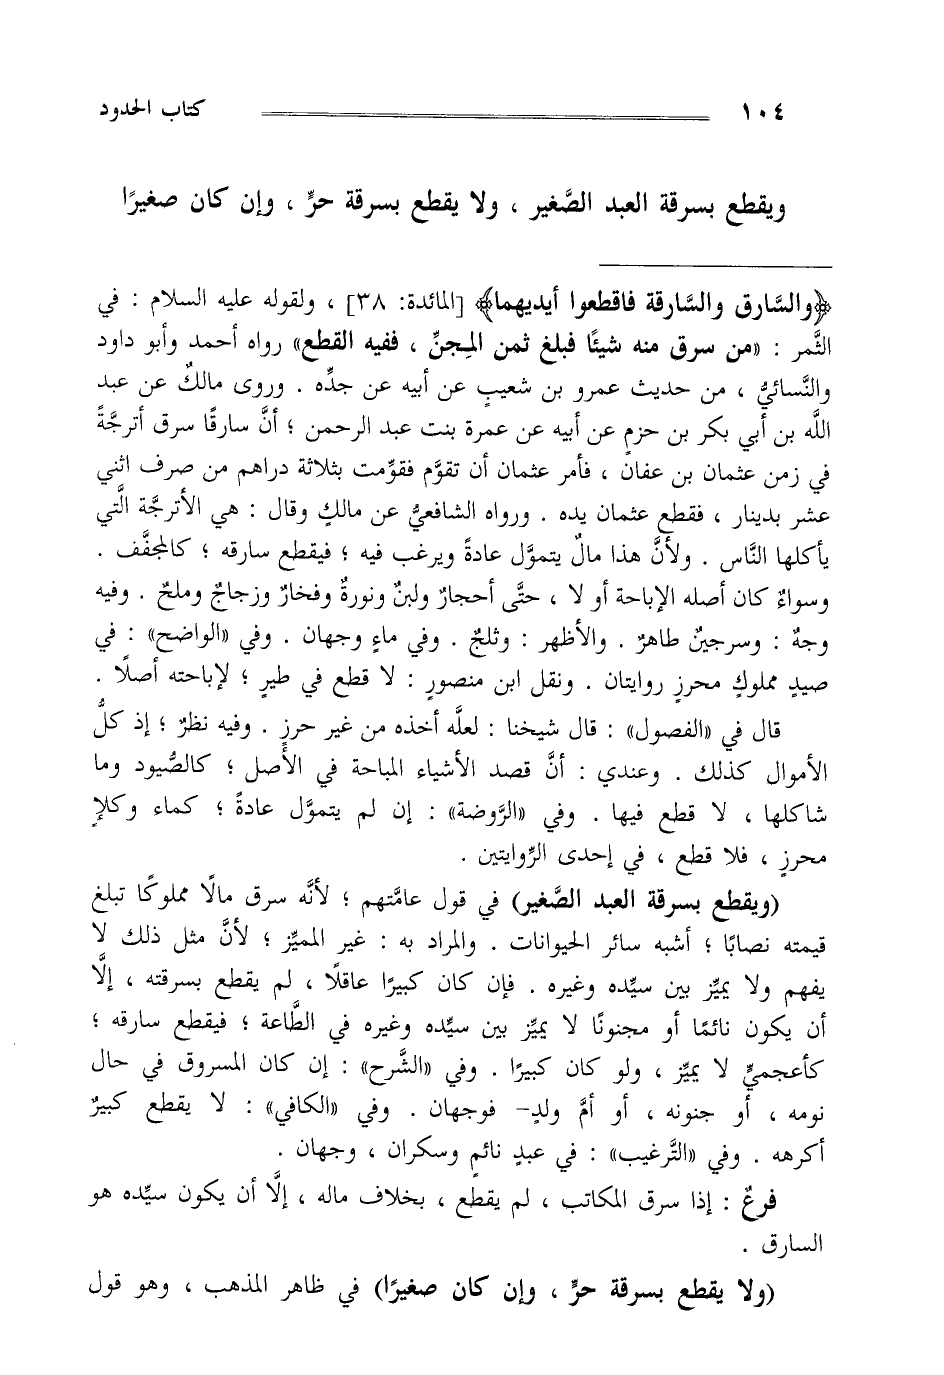 ١٠٤ كتاب الحدود
ويقطع بسرقة العبد الصَّغير ، ولا يقطع بسرقة حرٍّ ، وإن كان صغيرًا
﴿والسَّارق والسَّارقة فاقطعوا أيديهما﴾ [المائدة: ٣٨] ، ولقوله عليه السلام : في
الثَّمر : «من سرق منه شيئًا فبلغ ثمن المِجنِّ ، ففيه القطع» رواه أحمد وأبو داود
والنَّسائيُّ ، من حديث عمرو بن شعيبٍ عن أبيه عن جدِّه . وروى مالكٌ عن عبد
اللَّه بن أبي بكر بن حزمٍ عن أبيه عن عمرة بنت عبد الرحمن ؛ أنَّ سارقًا سرق أترجَّةً
في زمن عثمان بن عفان ، فأمر عثمان أن تقوَّم فقوِّمت بثلاثة دراهم من صرف اثني
عشر بدينار ، فقطع عثمان يده . ورواه الشافعيُّ عن مالكٍ وقال : هي الأترجَّة الَّتي
يأكلها النَّاس . ولأنَّ هذا مالٌ يتموَّل عادةً ويرغب فيه ؛ فيقطع سارقه ؛ كالمجفَّف .
وسواءٌ كان أصله الإباحة أو لا ، حتَّى أحجارٌ ولبنٌ ونورةٌ وفخارٌ وزجاجٌ وملحٌ . وفيه
وجهٌ : وسرجينٌ طاهرٌ . والأظهر : وثلجٌ . وفي ماءٍ وجهان . وفي «الواضح» : في
صيدٍ مملوكٍ محرزٍ روايتان . ونقل ابن منصورٍ : لا قطع في طيرٍ ؛ لإباحته أصلًا .
قال في «الفصول» : قال شيخنا : لعلَّه أخذه من غير حرزٍ . وفيه نظرٌ ؛ إذ كلُّ
الأموال كذلك . وعندي : أنَّ قصد الأشياء المباحة في الأصل ؛ كالصُّيود وما
شاكلها ، لا قطع فيها . وفي «الرَّوضة» : إن لم يتموَّل عادةً ؛ كماء وكلإٍ
محرزٍ ، فلا قطع ، في إحدى الرِّوايتين .
(ويقطع بسرقة العبد الصَّغير) في قول عامَّتهم ؛ لأنَّه سرق مالًا مملوكًا تبلغ
قيمته نصابًا ؛ أشبه سائر الحيوانات . والمراد به : غير المميِّز ؛ لأنَّ مثل ذلك لا
يفهم ولا يميِّز بين سيِّده وغيره . فإن كان كبيرًا عاقلًا ، لم يقطع بسرقته ، إلَّا
أن يكون نائمًا أو مجنونًا لا يميِّز بين سيِّده وغيره في الطَّاعة ؛ فيقطع سارقه ؛
كأعجميٍّ لا يميِّز ، ولو كان كبيرًا . وفي «الشَّرح» : إن كان المسروق في حال
نومه ، أو جنونه ، أو أمَّ ولدٍ- فوجهان . وفي «الكافي» : لا يقطع كبيرٌ
أكرهه . وفي «التَّرغيب» : في عبدٍ نائمٍ وسكران ، وجهان .
فرعٌ : إذا سرق المكاتب ، لم يقطع ، بخلاف ماله ، إلَّا أن يكون سيِّده هو
السارق .
(ولا يقطع بسرقة حرٍّ ، وإن كان صغيرًا) في ظاهر المذهب ، وهو قول